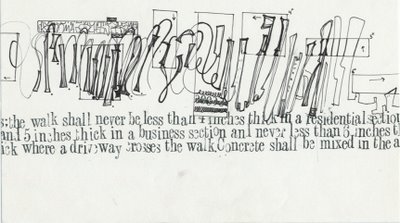 s:the walk shall never be less than 4 inches thick in a residential sectiou
and 5 inches thick in a business section and never less than 6 inches t
ick where a driveway crosses the walk.Concrete shall be mixed in the a